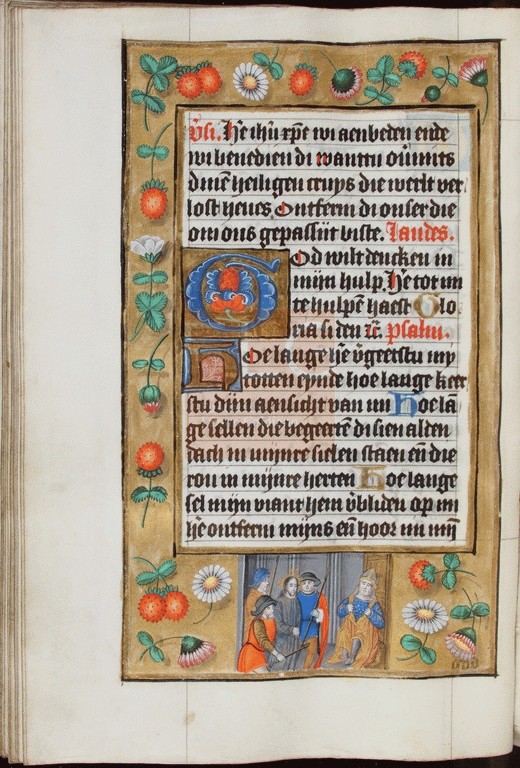 v̄si. He ihū xpē wi aenbeden ende
wi benedien di wanttu ōumits
dinē heiligen cruys die werlt ver
lost heues Ontferm di onser die
om ons gepassijt biste. Laudes.
God wilt dencken in
mijn hulp. He tot im
te hulpē haest Glo
ria si den ꝛc. psalm.
Hoe lange hē v̄geetstu my
totten eynde hoe lange keer
stu dijn aensicht van mi Hoe lā
ge sellen die begeertē di sien alden
dach in mijnre sielen staen eñ die
rou in mijnre herten Hoe lange
sel mijn viant hem v̄bliden op mi
hē ontferm mijns eñ hoor mi mij